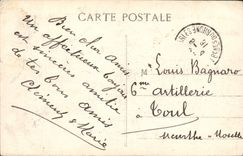 CARTE POSTALE
Bien cher Ami
Un affectueux bonjour
et sincères amitiés
de tes bons amis
Clémence & Marie
M Louis Bagnaro
6me artillerie
Toul
Meurthe-Moselle